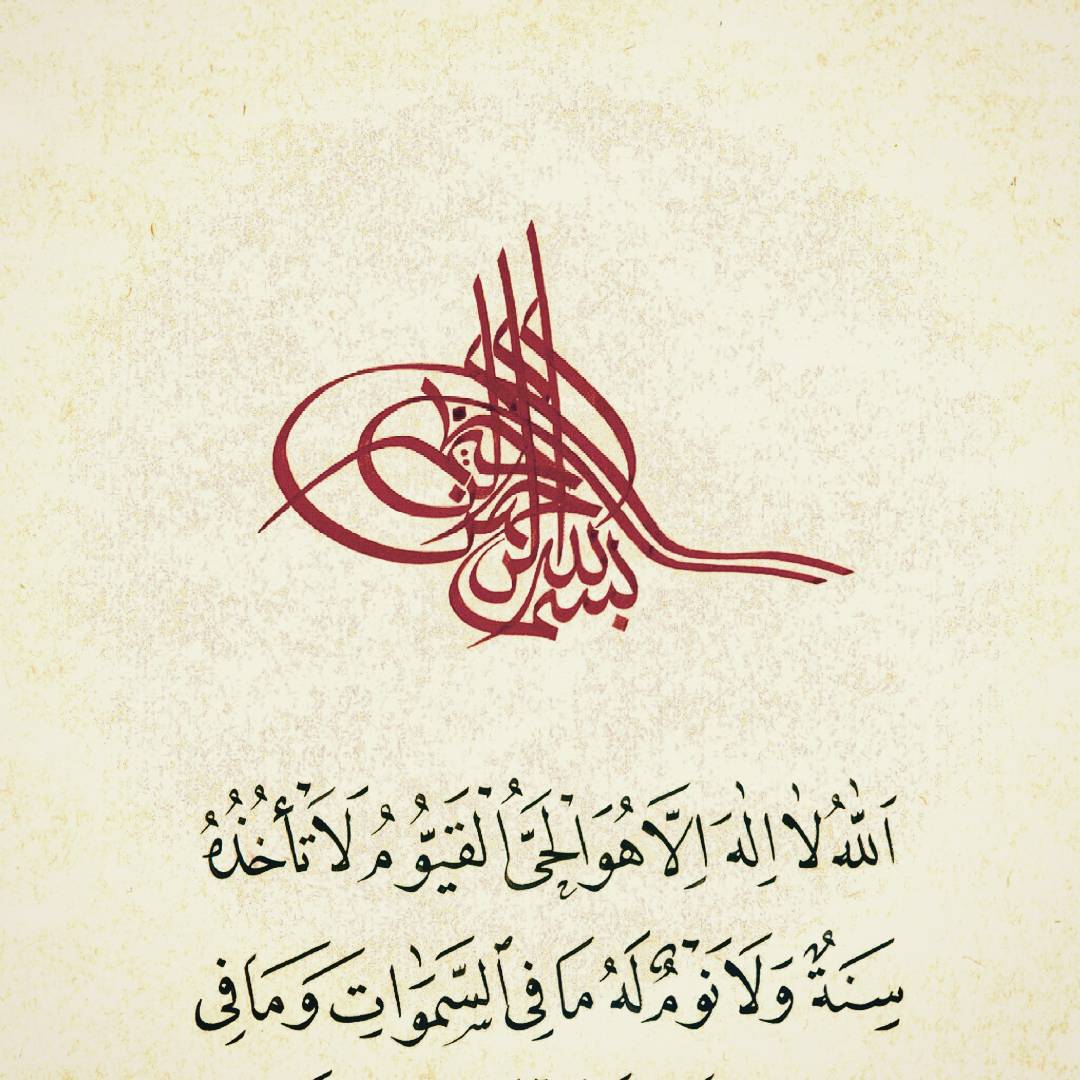 بسم الله الرحمن الرحيم
اَللّٰهُ لَا اِلٰهَ اِلَّا هُوَ الْحَيُّ الْقَيُّومُ لَا تَأْخُذُهُ
سِنَةٌ وَلَا نَوْمٌ لَهُ مَا فِي السَّمٰوَاتِ وَمَا فِي